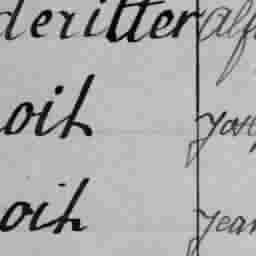 deritter Alf
oit Jos
oit Jean